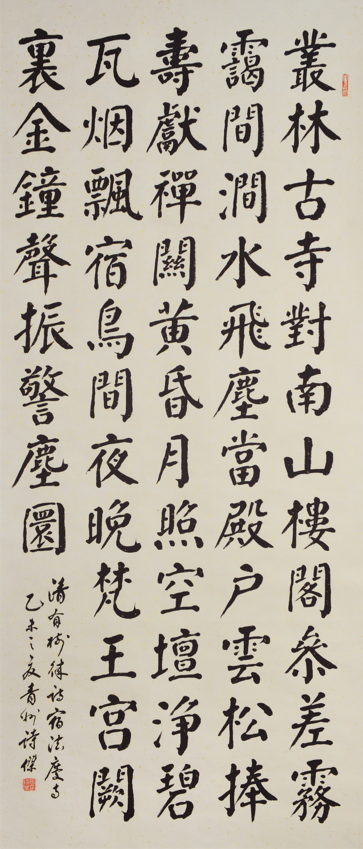 叢林古寺對南山樓閣叅差霧
靄間澗水飛塵當殿户雲松捧
壽獻禪關黄昏月照空壇淨碧
瓦烟飄宿鳥間夜晚梵王宮闕
裏金鐘聲振警塵圜
清有榯律詩宿法慶寺
乙未之夏青州詩傑